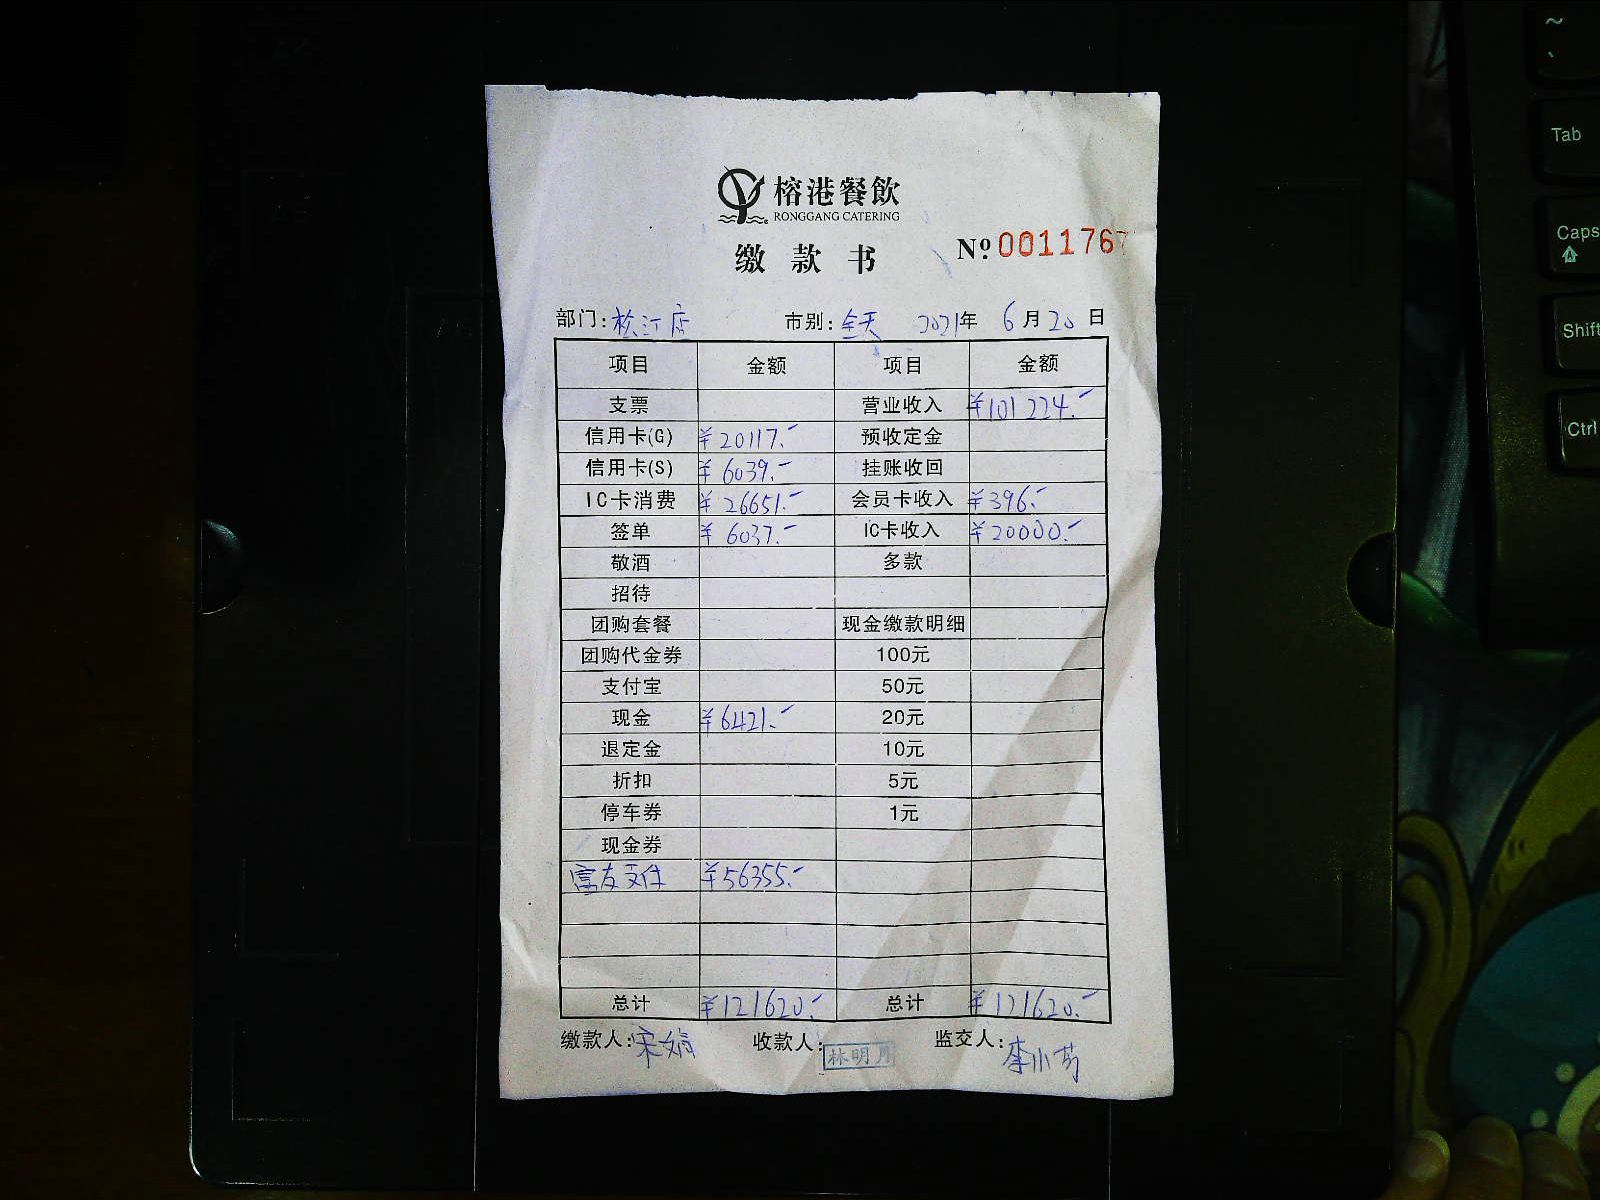 榕港餐飲
RONGGANG CATERING
缴款书
Nº 0011767
部门: 松江店 市别: 全天 2021年 6月20日
项目 金额 项目 金额
支票 营业收入 ¥101224.-
信用卡(G) ¥20117.- 预收定金
信用卡(S) ¥6039.- 挂账收回
IC卡消费 ¥26651.- 会员卡收入 ¥396.-
签单 ¥6037.- IC卡收入 ¥20000.-
敬酒 多款
招待
团购套餐 现金缴款明细
团购代金券 100元
支付宝 50元
现金 ¥6421.- 20元
退定金 10元
折扣 5元
停车券 1元
现金券
富友支付 ¥56355.-
总计 ¥121620.- 总计 ¥121620.-
缴款人: 宋娟 收款人: 林明月 监交人: 李小芳
~
`
Tab
Caps
Shift
Ctrl